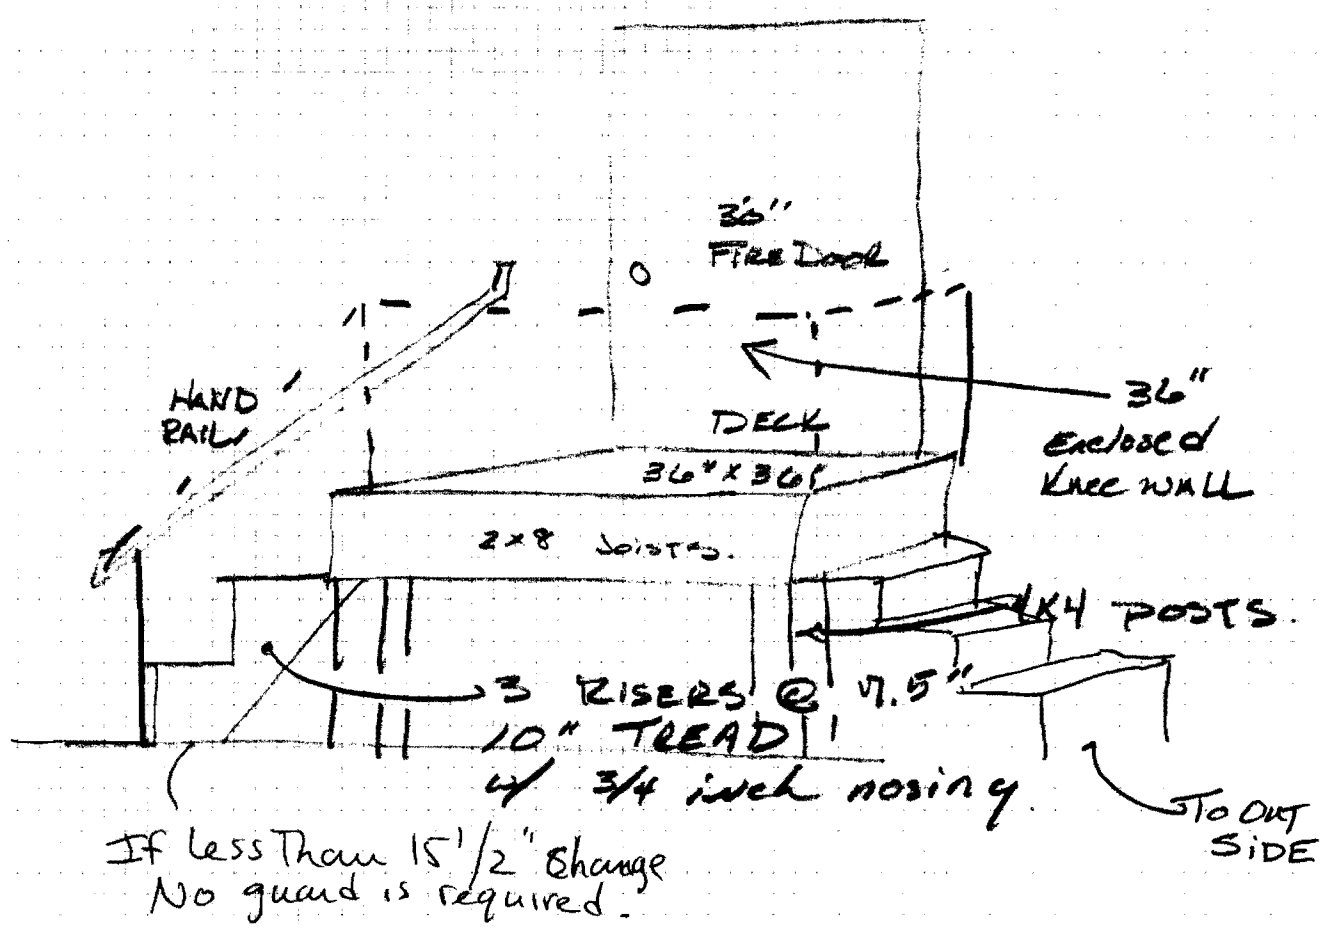 3'0"
FIRE DOOR
HAND
RAIL
36"
Enclosed
Knee WALL
DECK
36" x 36"
2x8 Joists.
4x4 POSTS.
3 RISERS @ 7.5"
10" TREAD
w/ 3/4 inch nosing.
To OUT
SIDE
If Less Than 15 1/2" Change
No guard is required.